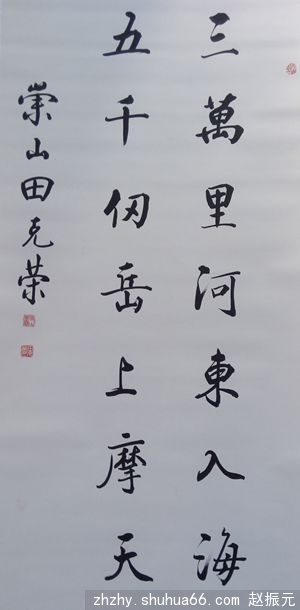 三萬里河東入海
五千仞岳上摩天
崇山田克荣
zhzhy.shuhua66.com 赵振元